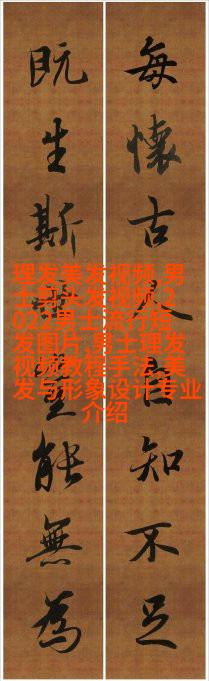 每懷古人自知不足
既生斯能無為
理发美发视频,男
士头发视频,2
022男士流行短
发图片,男士理发
视频教程手法,美
发与形象设计专业
介绍